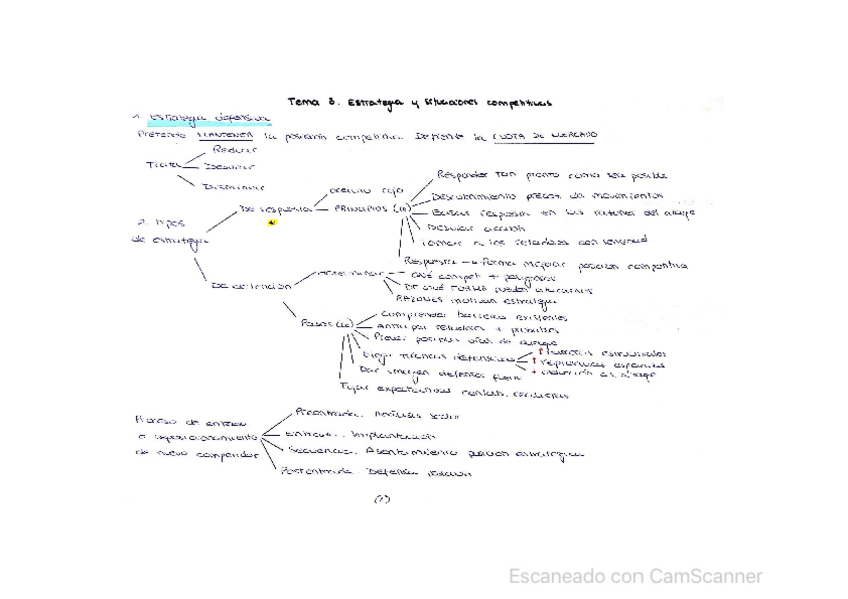 Tema 3. Estrategia y situaciones competitivas
1. Estrategia defensiva
Pretende MANTENER la posición competitiva. Defiende la CUOTA DE MERCADO
Reducir
Trata Desviar
Disminuir
De respuesta
PRINCIPIOS
Responder tan pronto como sea posible
Descubrimiento precoz de movimientos
Basar respuesta en las razones del ataque
Desviar acción
Tomar a los retadores con seriedad
Respuesta → forma mejorar posición competitiva
2. Tipos
de estrategia
De disuasión
Determinar
Qué compet + peligrosos
DE QUÉ FORMA pueden atacarnos
RAZONES motivan estrategia
Pasos
Comprender barreras existentes
Anticipar retadores + probables
Prever posibles vías de ataque
Elegir tácticas defensivas
↑ barreras estructurales
↑ represalias esperadas
↓ inducción al ataque
Dar imagen defensa fuerte
Fijar expectativas
Proceso de entrada
o reposicionamiento
de nuevo competidor
Preentrada. Análisis
Entrada. Implantación
Secuencia. Asentamiento posición estratégica
Postentrada. Defensa posición
(1)
Escaneado con CamScanner